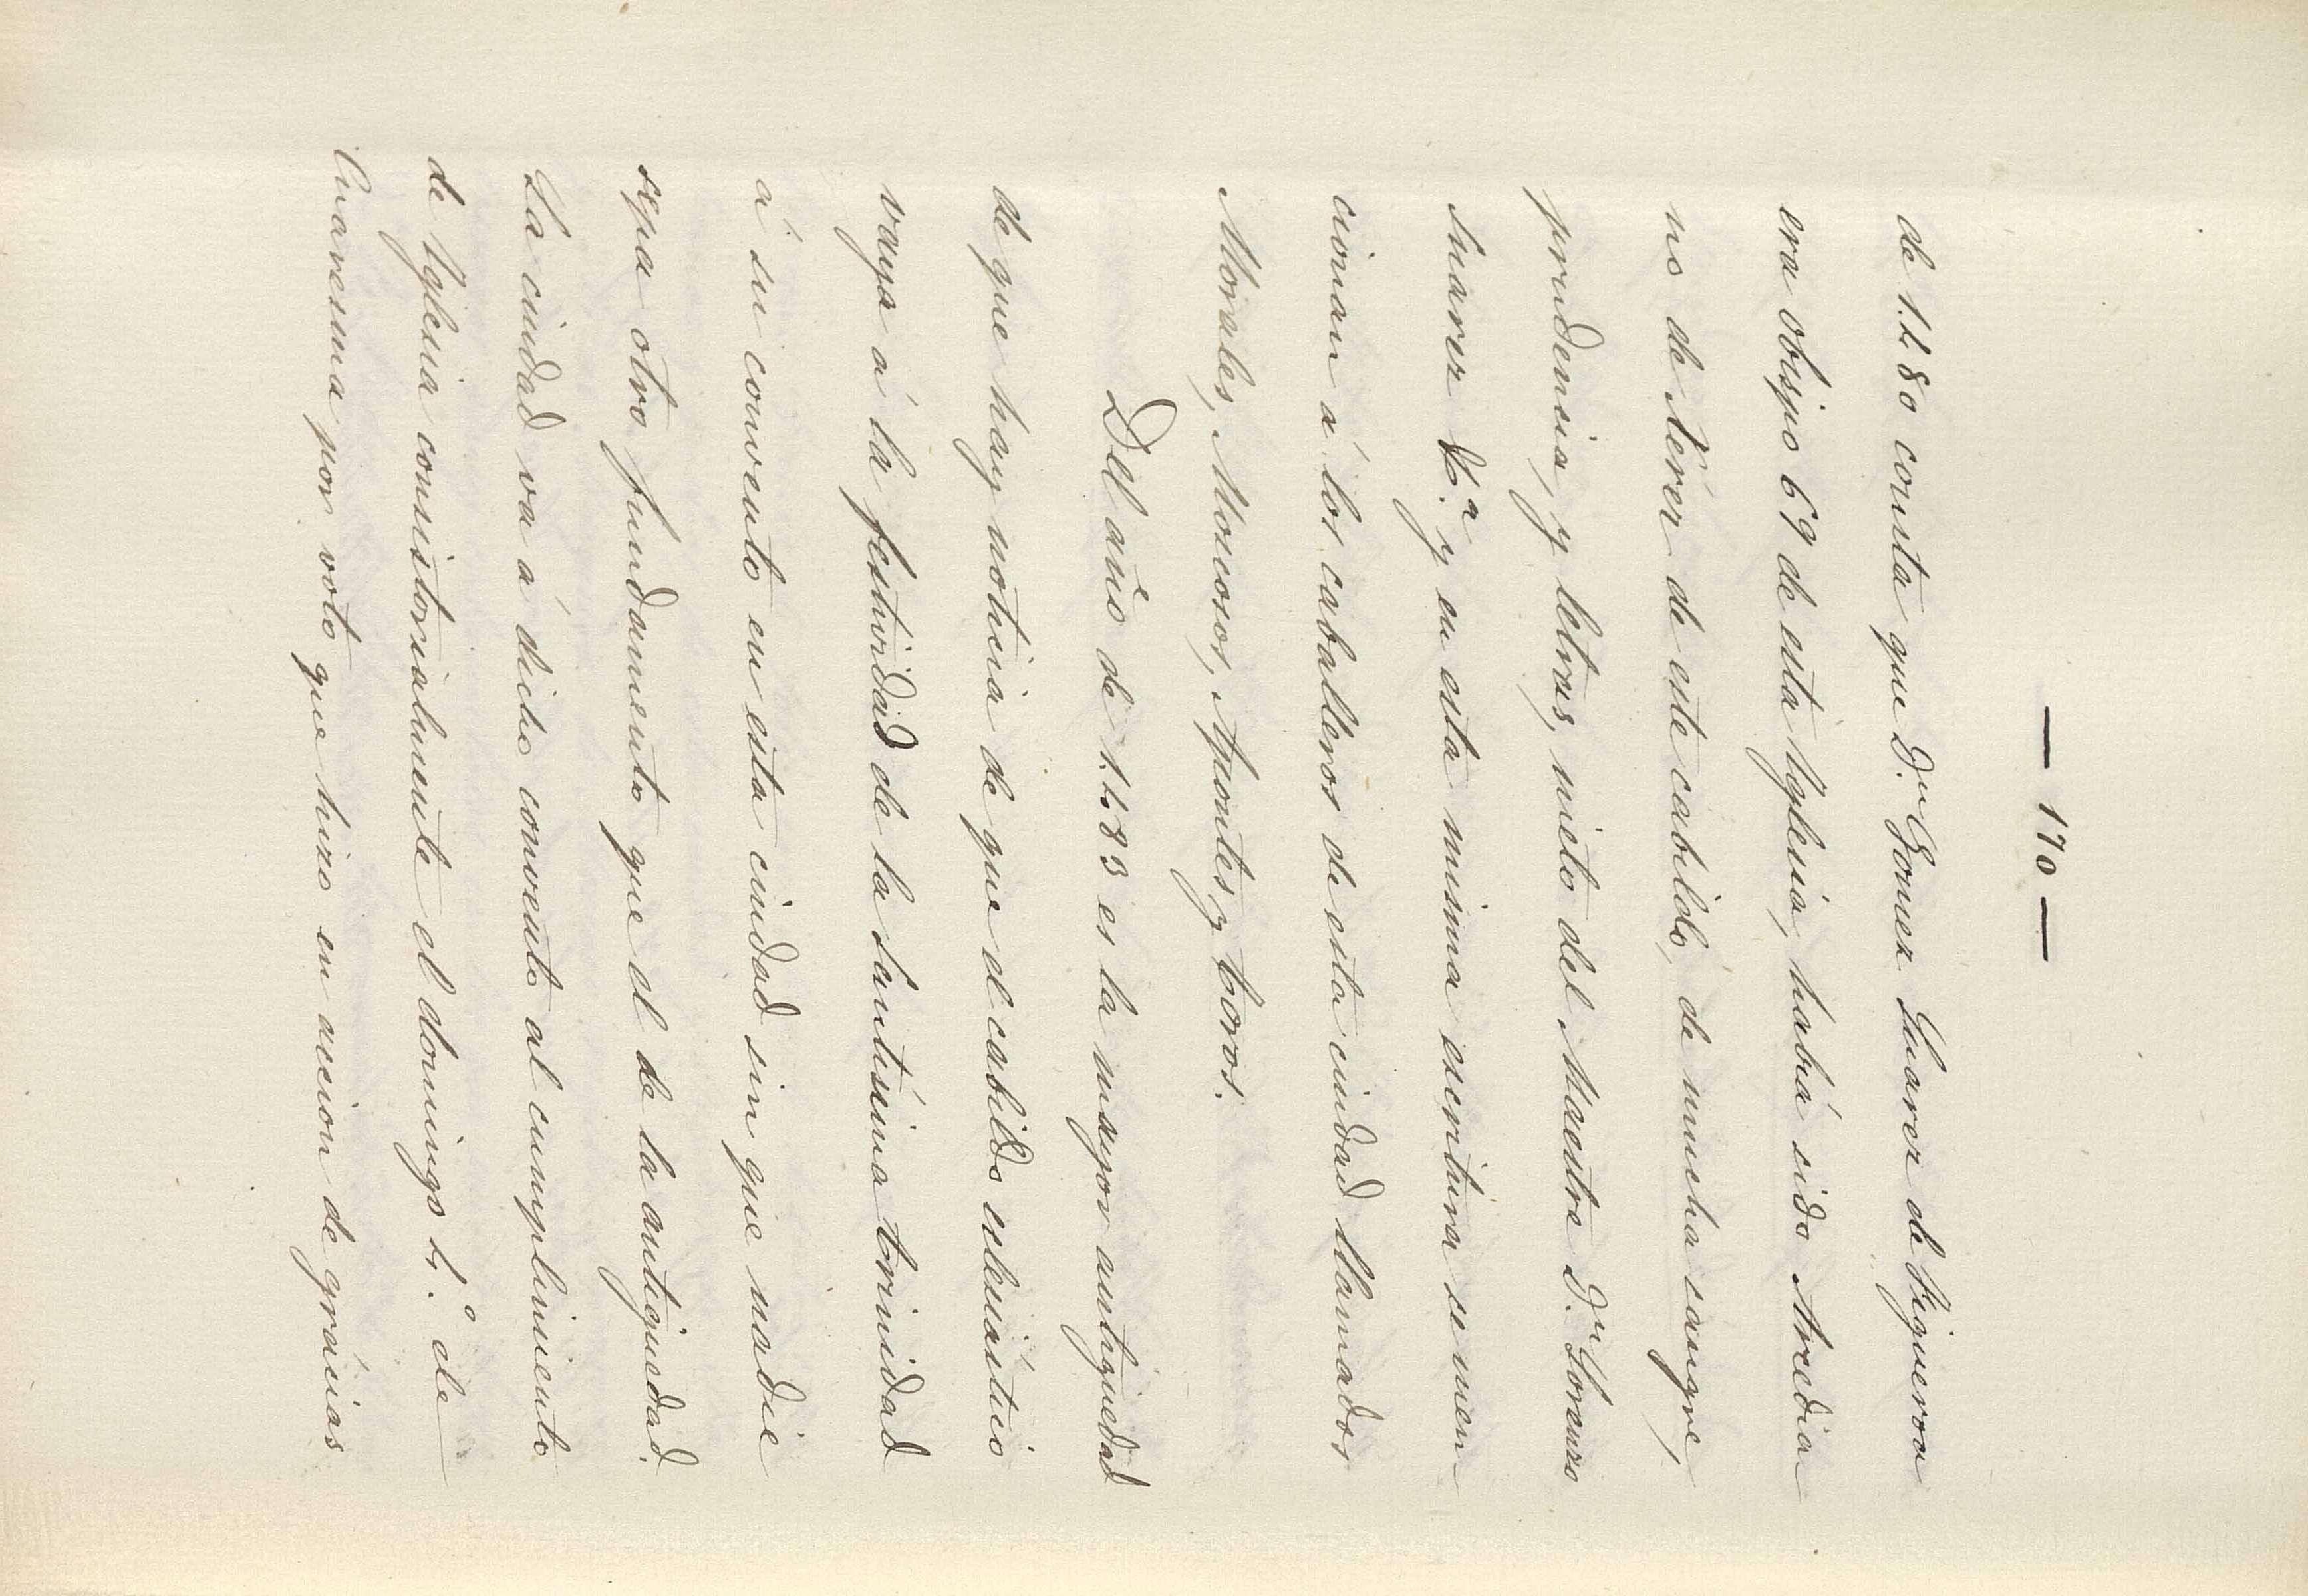 — 170 —
de 1480 consta que D.ⁿ Gomez Suarez de Figueroa
era obispo 69 de esta Yglesia, habrá sido Arcedia
no de Xérez de este cabildo, de mucha sangre,
prudencia, y letras, nieto del Maestre D.ⁿ Lorenzo
Suarez &.ª y en esta misma escritura se men
cionan á los caballeros de esta ciudad llamados
Morales, Monsos, Apontes, y Toros.
Del año de 1483 es la mayor antiguedad
de que hay noticia de que el cabildo eclesiástico
vaya á la festividad de la Santísima trinidad
á su convento en esta ciudad sin que nadie
sepa otro fundamento que el de la antiguedad.
La ciudad va á dicho convento al cumplimiento
de Yglesia consistorialmente el domingo 4.º de
Cuaresma por voto que hizo en accion de grácias